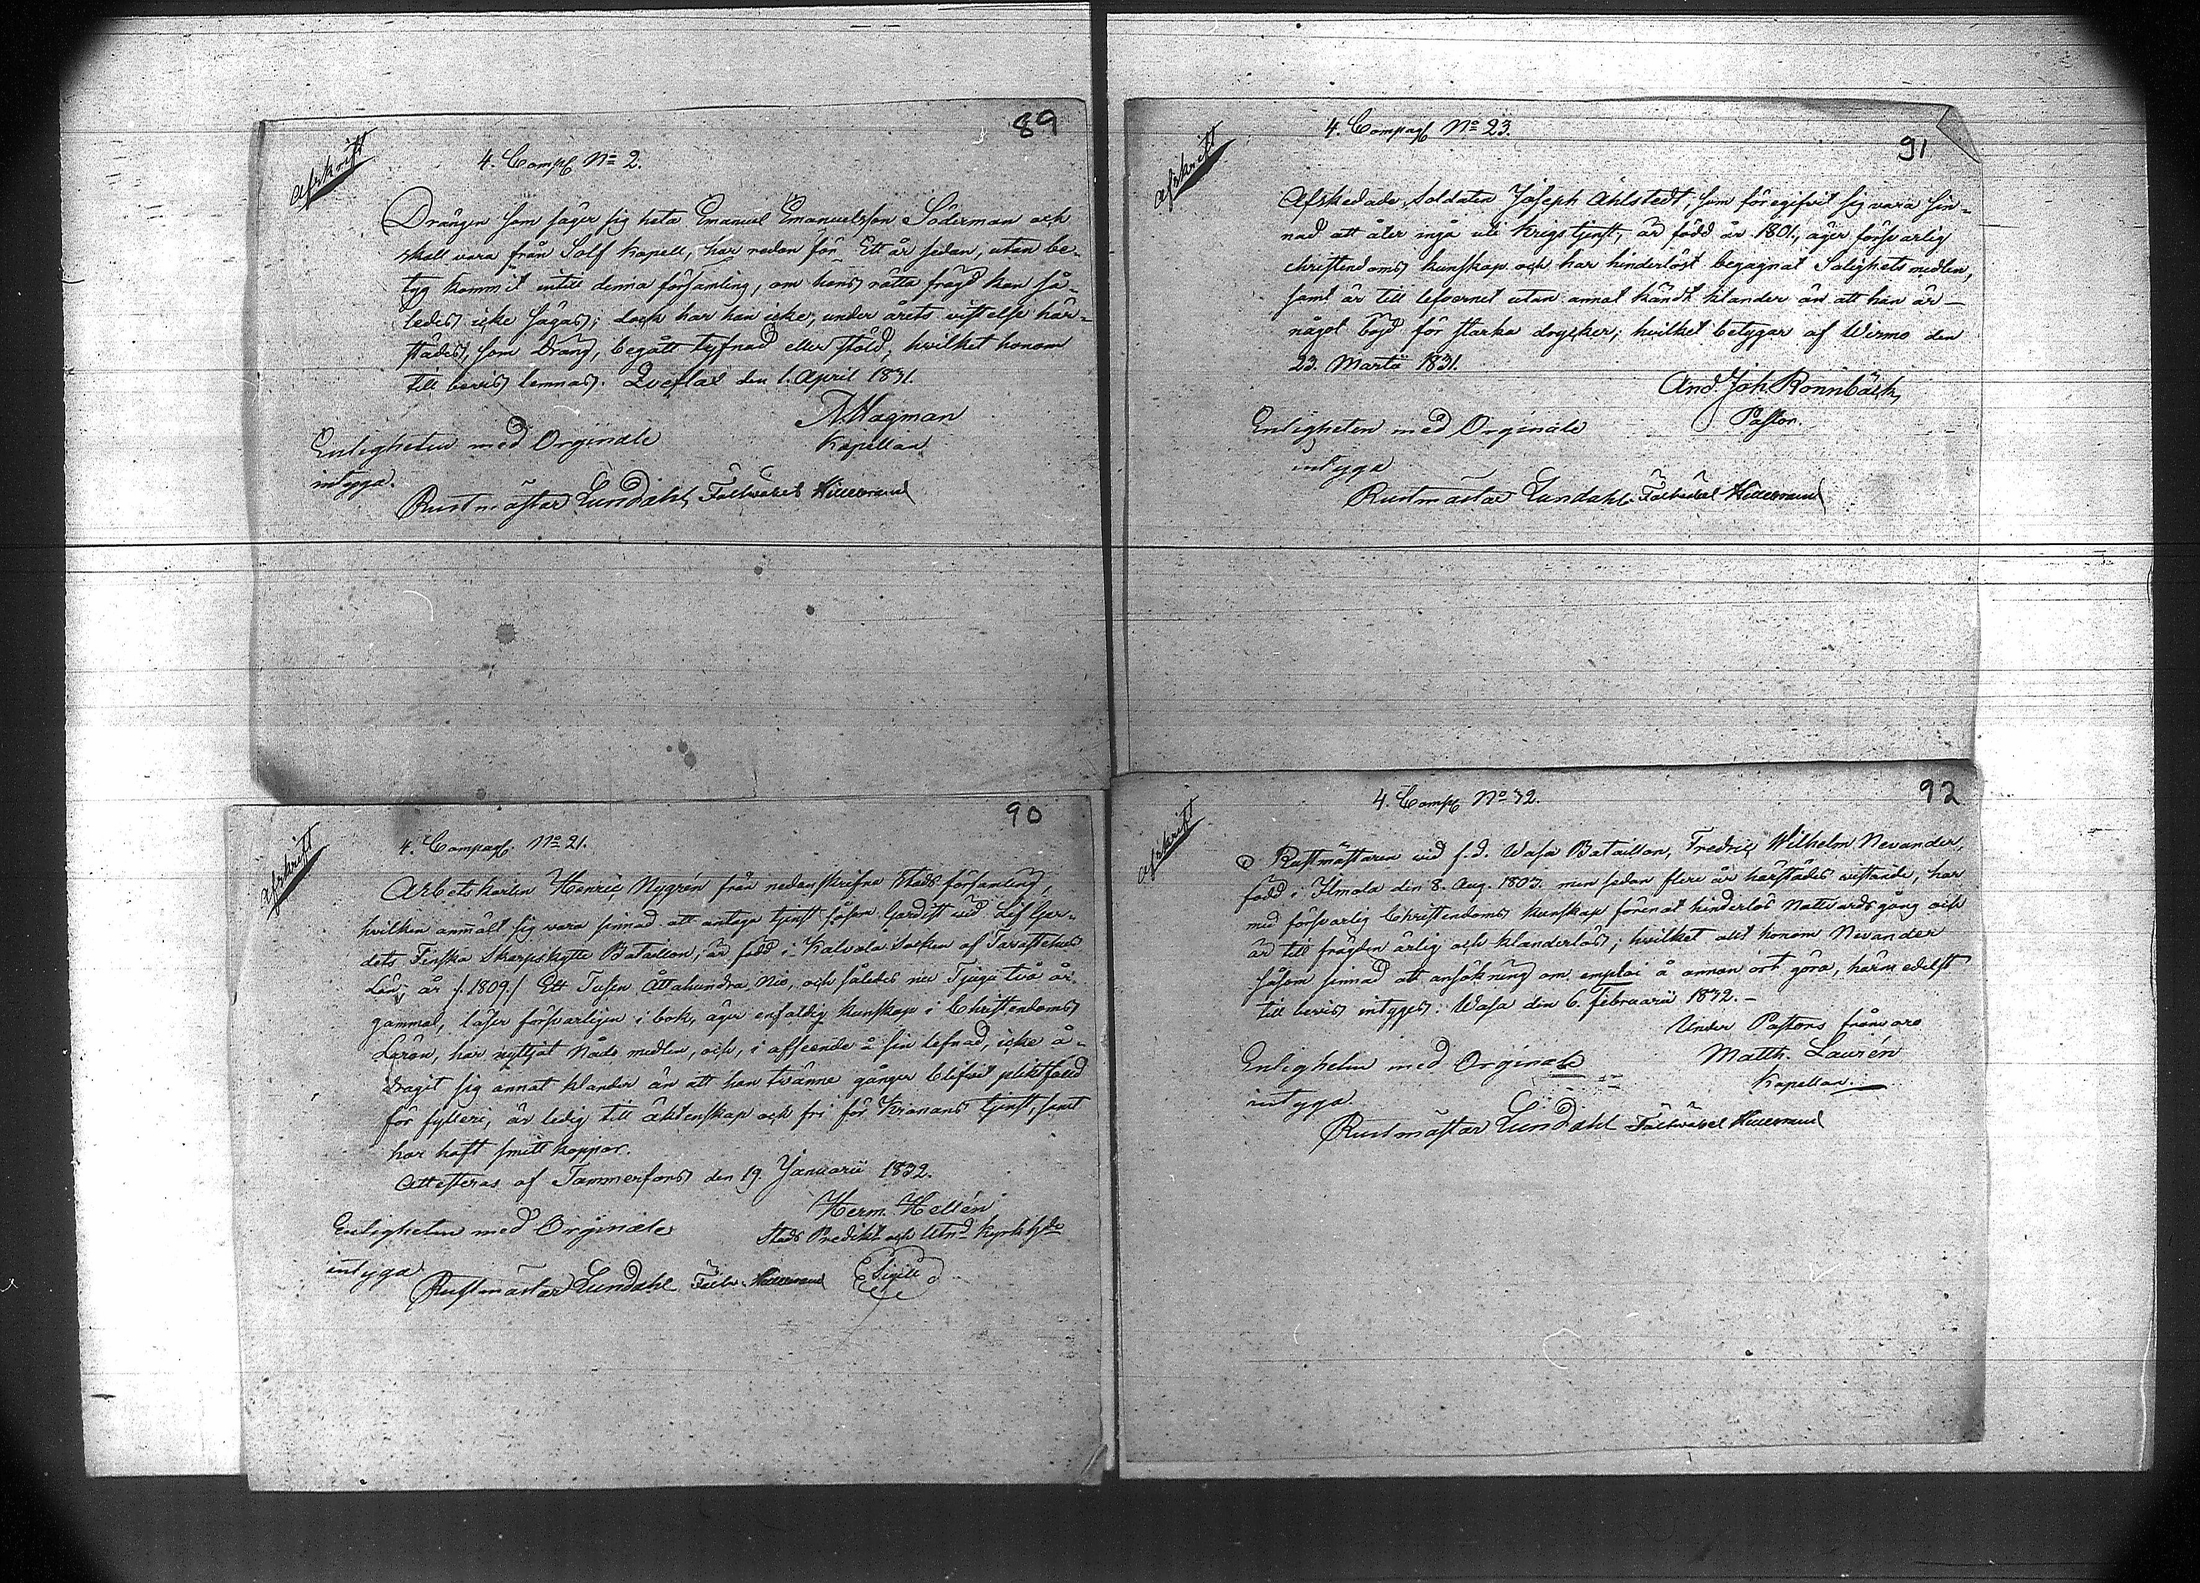 89
Afskrift
4. Comp. No 2.
Drängen som säger sig heta Emanuel Emanuelsson Söderman och
skall vara från Solf Kapell, har redan för Ett år sedan, utan be-
tyg kommit intill denna församling, om hans rätta frägd kan så-
ledes icke sägas; dock har han icke, under årets vistelse här-
städes, som Dräng, begått tyfnad eller stöld, hvilket honom
till bevis lemnas. Qveflax den 1. April 1831.
Hagman
Kapellan
Enligheten med Orginale
intyga.
Rustmästar Lundahl, Fältväbel
90
Afskrift
4. Compag. No 21.
Arbetskarlen Henric Nygrén från nedanskrifne Stads församling,
hvilken anmält sig vara sinnad att antaga tjenst såsom Gardist vid Lif Gar-
dets Finska Skarpskytte Bataillon, är född i Kalvola Socken af Tavastehus
Län, år /.1809./ Ett Tusen Åttahundra Nio, och således nu Tjugu två år
gammal, läser försvarligen i bok, äger enfaldig kunskap i Christendoms
Läran, har nyttjat Nåde medlen, och, i afseende å sin lefnad, icke å-
dragit sig annat klander än att han tvänne gånger blifvit pliktfälld
för fylleri, är ledig till äktenskap och fri för Kronans tjenst, samt
har haft smitt koppor.
Attesteras af Tammerfors den 19. Januarii 1832.
Herm. Hellén
Stads Predikt. och
Enligheten med Orginale
intyga
Rustmästar Lundahl Fältv.
Sigill
91
Afskrift
4. Compag. No 23.
Afskedade Soldaten Joseph Ahlstedt, som föregifvit sig vara sin-
nad att åter ingå uti Krigstjenst, är född år 1801, äger försvarlig
christendoms kunskap och har hinderlöst begagnat Salighets medlen,
samt är till lefvernet utan annat kändt klander än att han är
något böjd för starka drycker; hvilket betygar af Wirmo den
23. Martii 1831.
And. Joh. Rönnbäck,
Pastor.
Enligheten med Orginale
intyga
Rustmästar Lundahl. Fältväbel
92
Afskrift
4. Comp. No 32.
Rustmästaren vid f.d. Wasa Bataillon, Fredric Wilhelm Nevander,
född i Ilmola den 8. Aug. 1803. men sedan flere år härstädes vistande, har
med försvarlig Christendoms kunskap förenat hinderlös Nattvardsgång och
är till frägden ärlig och klanderlös; hvilket allt honom Nevander
såsom sinnad att ansökning om emploi å annan ort göra, härmedelst
till bevis intygas. Wasa den 6. Februarii 1832. -
Under Pastors frånvaro
Matth. Laurén
Kapellan.
Enligheten med Orginale
intyga.
Rustmästar Lundahl Fältväbel